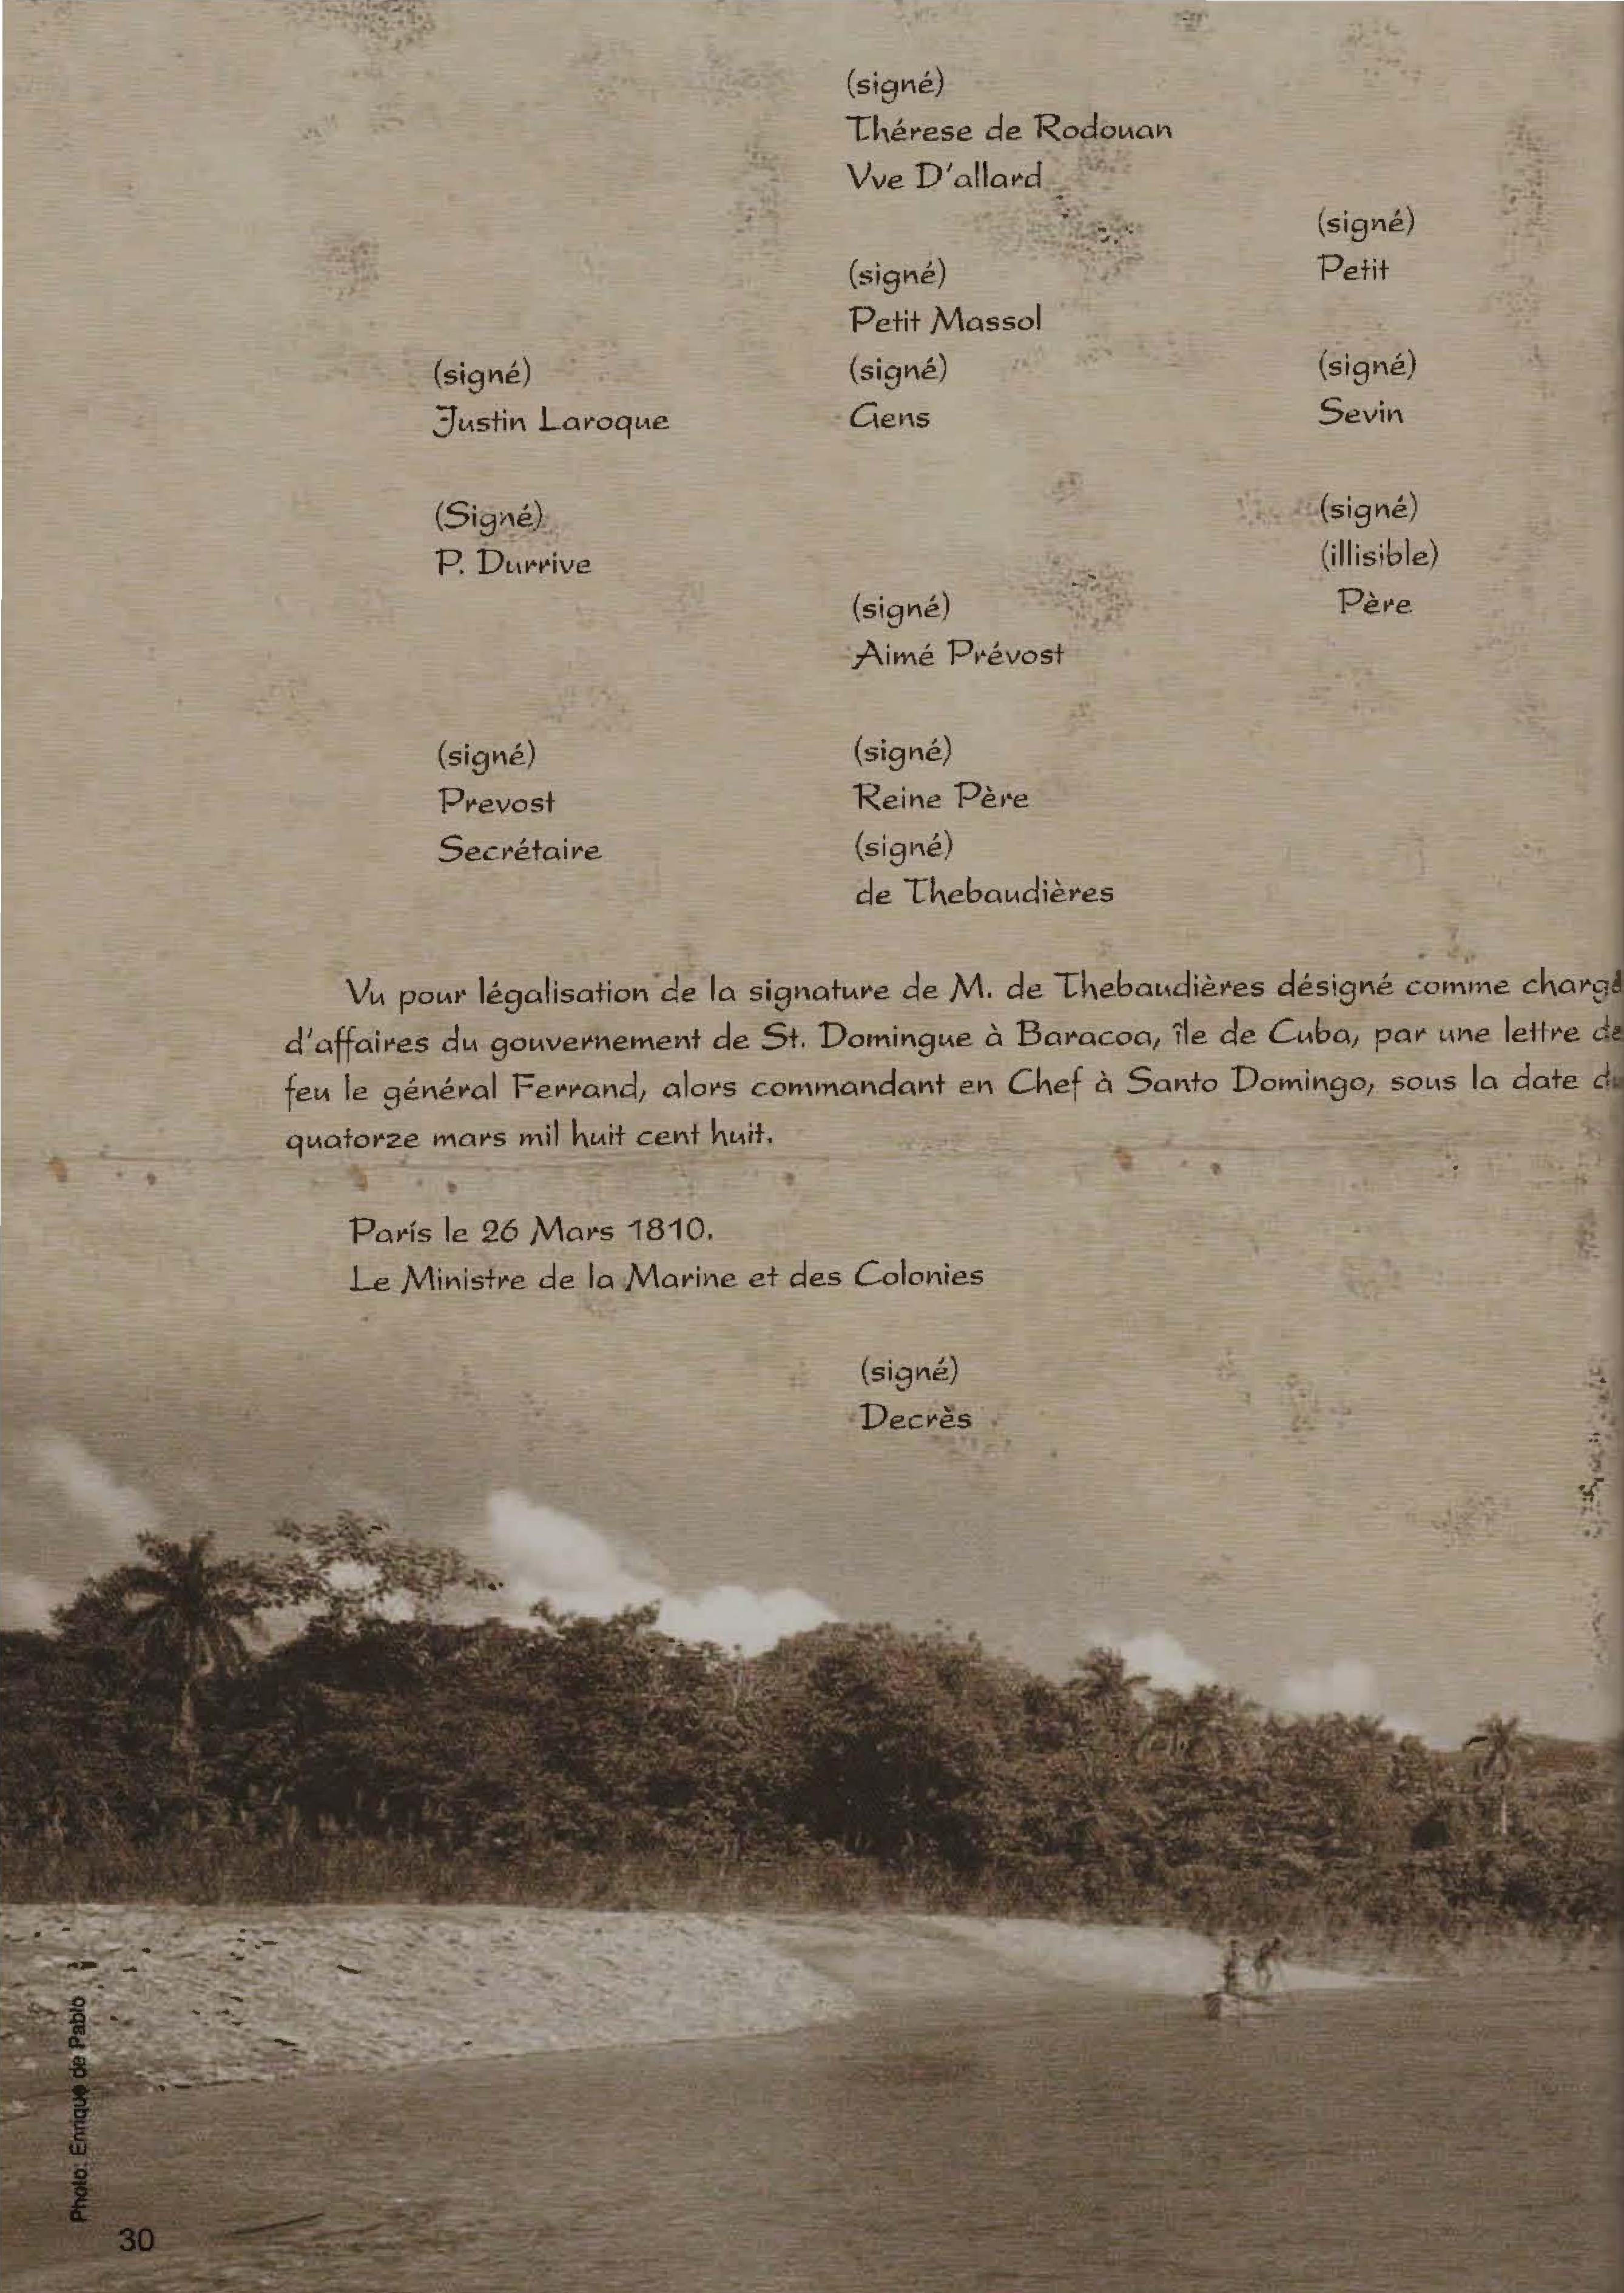 (signé)
Thérese de Rodouan
Vve D'allard
(signé)
Petit
(signé)
Petit Massol
(signé)
Justin Laroque
(signé)
Gens
(signé)
Sevin
(Signé)
P. Durrive
(signé)
(illisible)
Père
(signé)
Aimé Prévost
(signé)
Prevost
Secrétaire
(signé)
Reine Père
(signé)
de Thebaudières
Vu pour légalisation de la signature de M. de Thebaudières désigné comme chargé
d'affaires du gouvernement de St. Domingue à Baracoa, île de Cuba, par une lettre de
feu le général Ferrand, alors commandant en Chef à Santo Domingo, sous la date du
quatorze mars mil huit cent huit.
París le 26 Mars 1810.
Le Ministre de la Marine et des Colonies
(signé)
Decrès
Photo: Enrique de Pablo
30